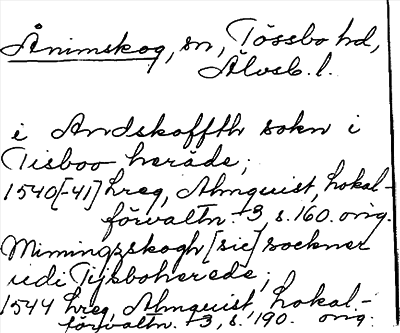 Ånimskog, sn, Tössbo hd,
Älvsb. l.
i Andskoffth sokn i
Tisboo heräde;
1540[-41] hreg, Almquist, Lokal-
förvaltn +3, s. 160. orig.
Mimingzskogh [sic] sockner
udi Tijsboherede;
1544 hreg, Almquist, Lokal-
förvaltn. +3, s. 190. orig.